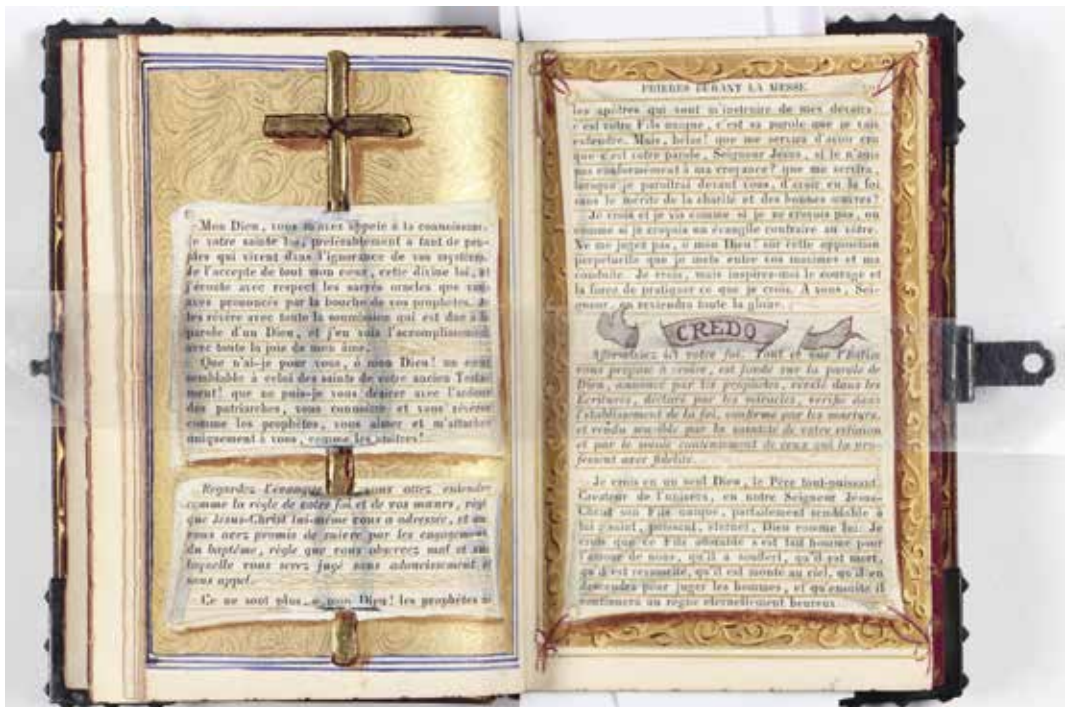 Mon Dieu, vous m'avez appelé à la connoissan-
de votre sainte loi, préférablement à tant de peu-
ples qui vivent dans l'ignorance de vos mystères.
Je l'accepte de tout mon cœur, cette divine loi, et
j'écoute avec respect les sacrés oracles que vous
avez prononcés par la bouche de vos prophètes. Je
les révère avec toute la soumission qui est due à la
parole d'un Dieu, et j'en vois l'accomplissement
avec toute la joie de mon âme.
Que n'ai-je pour vous, ô mon Dieu! un cœur
semblable à celui des saints de votre ancien Testa-
ment! que ne puis-je vous désirer avec l'ardeur
des patriarches, vous connoître et vous révérer
comme les prophètes, vous aimer et m'attacher
uniquement à vous, comme les apôtres!
Regardez l'évangile vous allez entendre
comme la règle de votre foi et de vos mœurs, règle
que Jésus-Christ lui-même vous a adressée, et que
vous avez promis de suivre par les engagements
du baptême, règle que vous observez mal et sur
laquelle vous serez jugé sans adoucissement et
sans appel.
Ce ne sont plus, ô mon Dieu! les prophètes ni
PRIÈRES DURANT LA MESSE.
les apôtres qui vont m'instruire de mes devoirs
c'est votre Fils unique, c'est sa parole que je vais
entendre. Mais, hélas! que me servira d'avoir cru
que c'est votre parole, Seigneur Jésus, si je n'agis
pas conformément à ma croyance? que me servira,
lorsque je paroîtrai devant vous, d'avoir eu la foi
sans le mérite de la charité et des bonnes œuvres?
Je crois et je vis comme si je ne croyois pas, ou
comme si je croyois un évangile contraire au vôtre.
Ne me jugez pas, ô mon Dieu! sur cette opposition
perpétuelle que je mets entre vos maximes et ma
conduite. Je crois, mais inspirez-moi le courage et
la force de pratiquer ce que je crois. A vous, Sei-
gneur, en reviendra toute la gloire.
CREDO
Affermissez ici votre foi. Tout ce que l'Eglise
vous propose à croire, est fondé sur la parole de
Dieu, annoncé par les prophètes, révélé dans les
Ecritures, déclaré par les miracles, vérifié dans
l'établissement de la foi, confirmé par les martyrs,
et rendu sensible par la sainteté de votre religion
et par le seule contentement de ceux qui la pro-
fessent avec fidélité.
Je crois en un seul Dieu, le Père tout-puissant,
Créateur de l'univers, en notre Seigneur Jésus-
Christ son Fils unique, parfaitement semblable à
lui puissant, éternel, Dieu comme lui. Je
crois que ce Fils adorable s'est fait homme pour
l'amour de nous, qu'il a souffert, qu'il est mort,
qu'il est ressuscité, qu'il est monté au ciel, qu'il en
descendra pour juger les hommes, et qu'ensuite il
continuera un règne éternellement heureux.